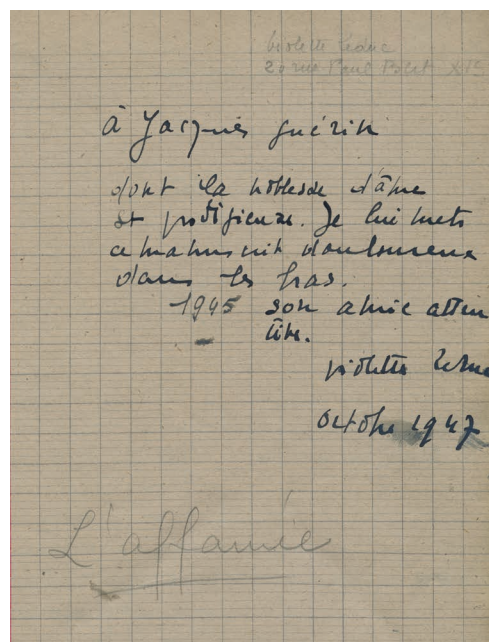 Violette Leduc
20 rue Paul Bert XIe
à Jacques Guérin
dont la noblesse d'âme
est prodigieuse. Je lui mets
ce manuscrit douloureux
dans les bras.
1945 son amie atten
tive.
Violette Leduc
octobre 1947
L'affamée